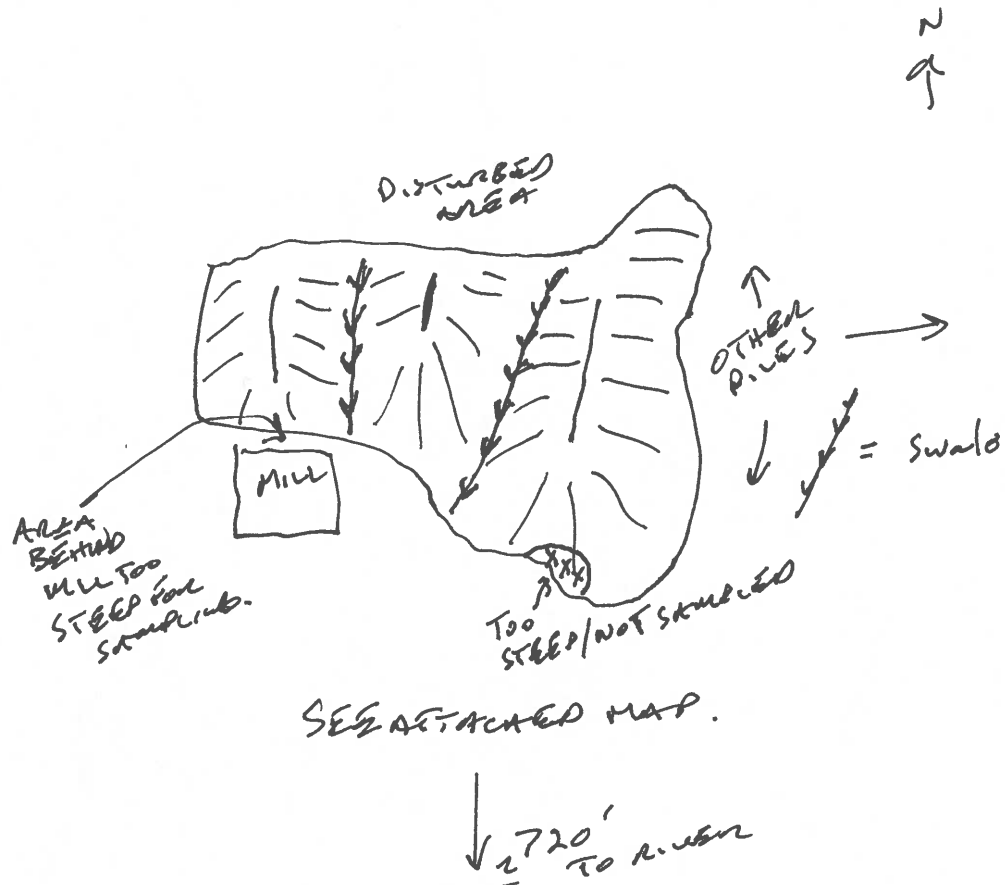 N
DISTURBED
AREA
OTHER
PILES
= Swale
MILL
AREA
BEHIND
MILL TOO
STEEP FOR
SAMPLING.
XXX
TOO
STEEP/NOT SAMPLED
SEE ATTACHED MAP.
720'
TO RIVER